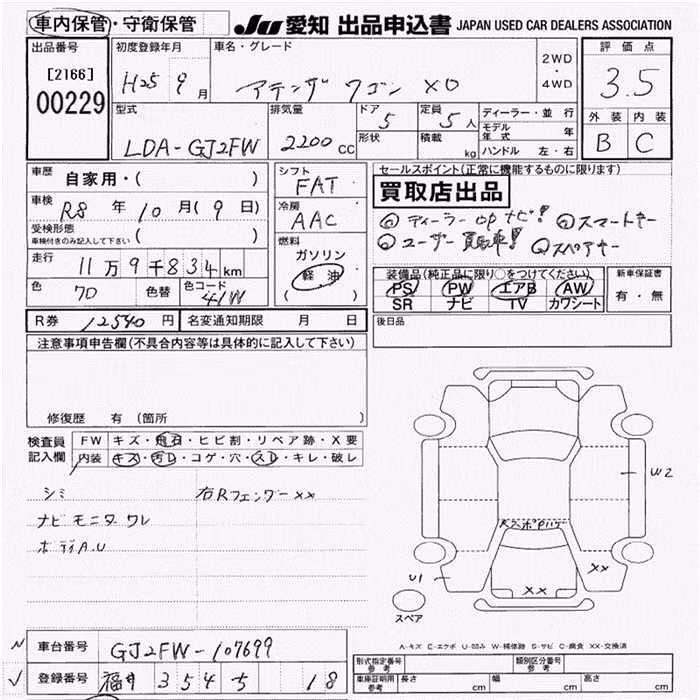 車内保管・守衛保管
JU 愛知 出品申込書 JAPAN USED CAR DEALERS ASSOCIATION
出品番号
[2166]
00229
初度登録年月
H25 9月
車名・グレード
アテンザ ワゴン XD
2WD
・
4WD
評価点
3.5
外装 内装
B C
型式
LDA-GJ2FW
排気量
2200 cc
ドア
5
形状
定員
5人
積載
kg
ディーラー・並行
モデル年式 年
ハンドル 左・右
車歴 自家用・( )
車検 R8年 10月(9日)
受検形態
車検付きのみ記入して下さい ( )
走行 11万9千834km
色 色替 色コード 41W
シフト
FAT
冷房
AAC
燃料
ガソリン
軽油
( )
セールスポイント(正常に機能するものに限ります)
買取店出品
◎ディーラーopナビ! ◎スマートキー
◎ユーザー買取車! ◎スペアキー
装備品(純正品に限り○をつけてください)
PS PW エアB AW
SR ナビ TV カワシート
新車保証書
有・無
後日品
R券 12540円 名変通知期限 月 日
注意事項申告欄(不具合内容等は具体的に記入して下さい)
修復歴 有 (箇所 )
検査員記入欄
FW キズ・飛石・ヒビ割・リペア跡・X要
内装 キズ・汚レ・コゲ・穴・スレ・キレ・破レ
シミ 右Rフェンダーxx
ナビモニタワレ
ボディA.U
W2
xx
xx
U1
スペア
A-キズ E-エクボ U-凹み W-補修跡 S-サビ C-腐食 XX-交換済
車台番号 GJ2FW-107699
登録番号 福井 3545 18
型式指定番号 参考
類別区分番号 参考
車庫証明用 参考 長さ cm 幅 cm 高さ cm